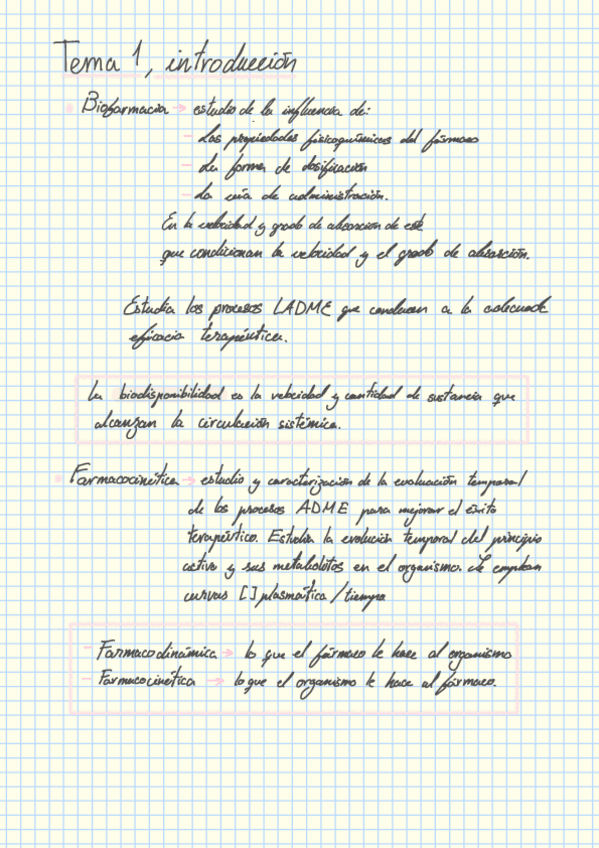 Tema 1, introducción
Biofarmacia → estudio de la influencia de:
- Las propiedades fisicoquímicas del fármaco
- La forma de dosificación
- La vía de administración.
En la velocidad y grado de absorción de este
que condicionan la velocidad y el grado de absorción.
Estudia los procesos LADME que conducen a la adecuada
eficacia terapéutica.
La biodisponibilidad es la velocidad y cantidad de sustancia que
alcanzan la circulación sistémica.
Farmacocinética → estudio y caracterización de la evaluación temporal
de los procesos ADME para mejorar el éxito
terapéutico. Estudia la evolución temporal del principio
activo y sus metabolitos en el organismo. Se emplean
curvas [] plasmática / tiempo
- Farmacodinámica → lo que el fármaco le hace al organismo
- Farmacocinética → lo que el organismo le hace al fármaco.